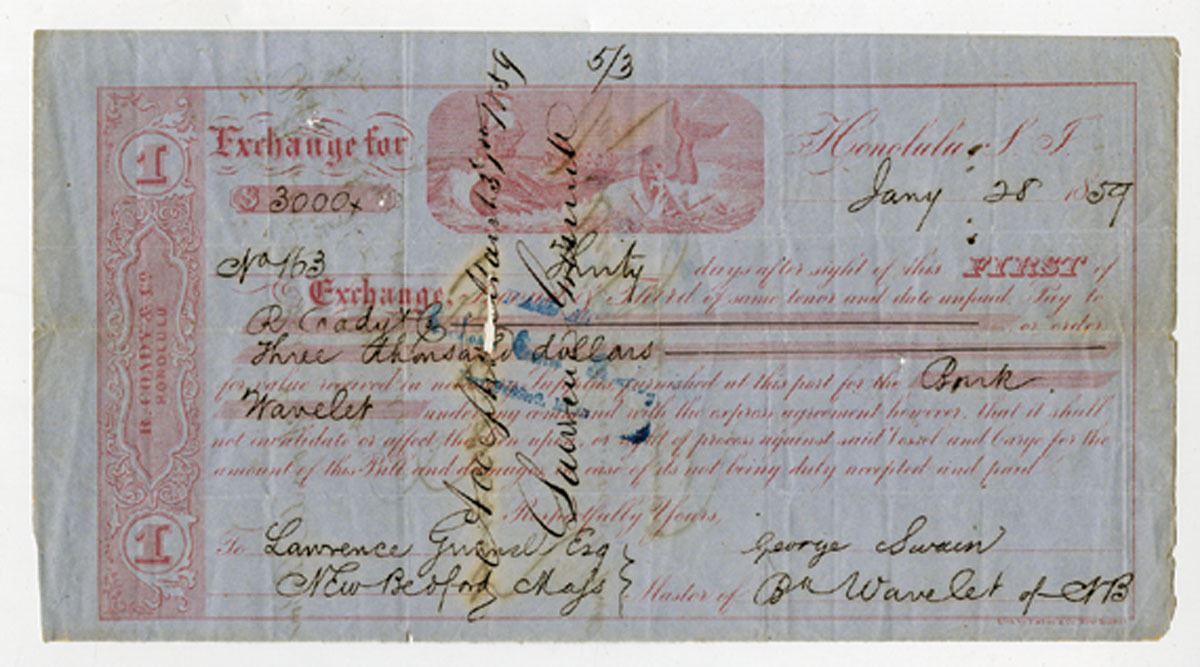 5/3
1
Exchange for
$ 3000
Honolulu S. I.
Jany 28 1859
No 163
Thirty days after sight of this FIRST of
Exchange, Second of same tenor and date unpaid. Pay to
R Coady & Co or order
Three thousand dollars
for value received in furnished at this port for the Bark
Wavelet under my command with the express agreement however, that it shall
not invalidate or affect the lien upon, or right of process against said Vessel and Cargo for the
amount of this Bill and damages in case of its not being duly accepted and paid
Respectfully Yours,
To Lawrence Grinnell Esq
New Bedford Mass
George Swain
Master of Bk Wavelet of NB
R. COADY & Co.
HONOLULU
1
Accepted 1859
Lawrence Grinnell